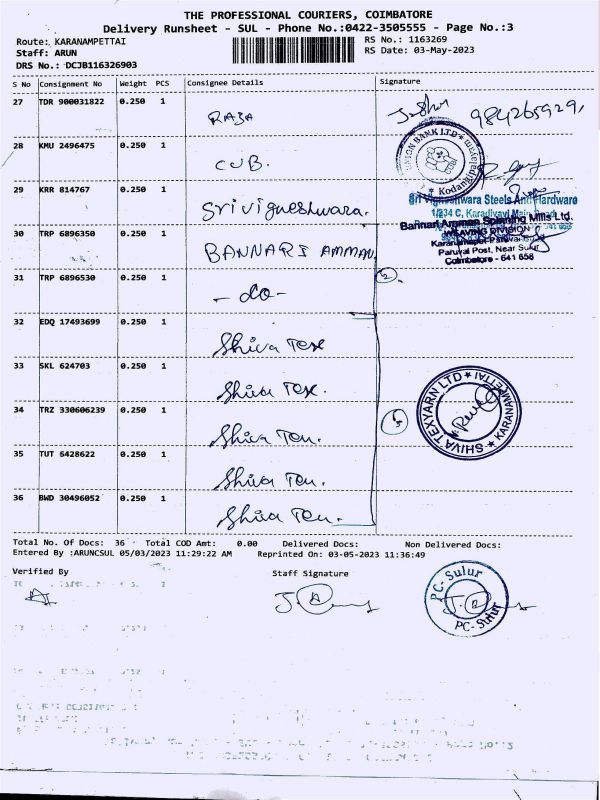 THE PROFESSIONAL COURIERS, COIMBATORE
Delivery Runsheet - SUL - Phone No.:0422-3505555 - Page No.:3
Route: KARANAMPETTAI
RS No.: 1163269
Staff: ARUN
RS Date: 03-May-2023
DRS No.: DCJB116326903
S No Consignment No Weight PCS Consignee Details Signature
27 TDR 900031822 0.250 1 RAJA 984265929,
28 KMU 2496475 0.250 1 CUB.
UNION BANK LTD
* Kodangipalayam
29 KRR 814767 0.250 1 Sri Vigneshwara.
Sri Vigneshwara Steels And Hardware
1/234 C, Karadivavi Main Road
30 TRP 6896350 0.250 1 BANNARI AMMAN
Bannari Amman Spinning Mills Ltd.
WEAVING DIVISION
Paruvai Post, Near Sulur
Coimbatore - 641 658
31 TRP 6896530 0.250 1 - do - 2.
32 EDQ 17493699 0.250 1 Shiva Tex
33 SKL 624703 0.250 1 Shiva Tex.
34 TRZ 330606239 0.250 1 Shiva Tex. 5
SHIVA TEXYARN LTD * KARANAMPETTAI *
35 TUT 6428622 0.250 1 Shiva Tex.
36 BWD 30496052 0.250 1 Shiva Tex.
Total No. Of Docs: 36 Total COD Amt: 0.00 Delivered Docs: Non Delivered Docs:
Entered By :ARUNCSUL 05/03/2023 11:29:22 AM Reprinted On: 03-05-2023 11:36:49
Verified By Staff Signature
PC-Sulur
PC-Sulur